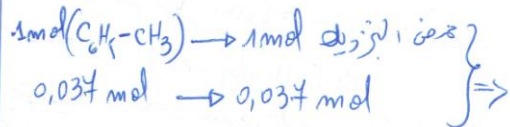 1mol(C₆H₅-CH₃) → 1mol حمض البنزويك }
0,037 mol → 0,037 mol } ⇒